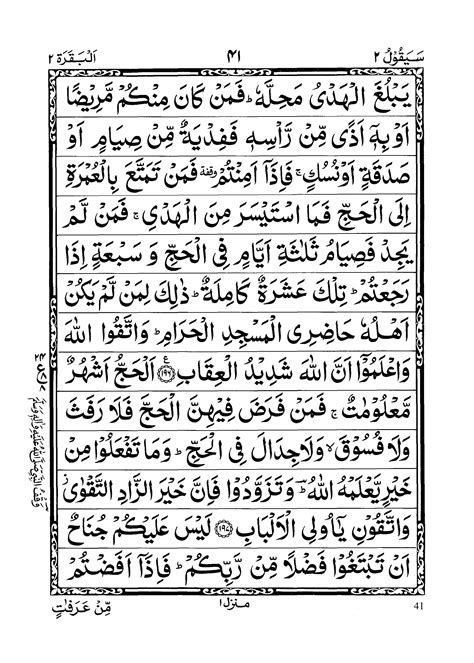 سَيَقُوْلُ ٢ ٤١ اَلْبَقَرَة ٢
يَبْلُغَ الْهَدْىُ مَحِلَّهٗ ؕ فَمَنْ كَانَ مِنْكُمْ مَّرِيْضًا
اَوْ بِهٖۤ اَذًى مِّنْ رَّاْسِهٖ فَفِدْيَةٌ مِّنْ صِيَامٍ اَوْ
صَدَقَةٍ اَوْ نُسُكٍ ۚ فَاِذَاۤ اَمِنْتُمْ ٝ وقفة فَمَنْ تَمَتَّعَ بِالْعُمْرَةِ
اِلَى الْحَجِّ فَمَا اسْتَيْسَرَ مِنَ الْهَدْىِ ۚ فَمَنْ لَّمْ
يَجِدْ فَصِيَامُ ثَلٰثَةِ اَيَّامٍ فِى الْحَجِّ وَ سَبْعَةٍ اِذَا
رَجَعْتُمْ ؕ تِلْكَ عَشَرَةٌ كَامِلَةٌ ؕ ذٰلِكَ لِمَنْ لَّمْ يَكُنْ
اَهْلُهٗ حَاضِرِى الْمَسْجِدِ الْحَرَامِ ؕ وَاتَّقُوا اللّٰهَ
وَاعْلَمُوْۤا اَنَّ اللّٰهَ شَدِيْدُ الْعِقَابِ ﴿١٩٦﴾ اَلْحَجُّ اَشْهُرٌ
مَّعْلُوْمٰتٌ ۚ فَمَنْ فَرَضَ فِيْهِنَّ الْحَجَّ فَلَا رَفَثَ
وَلَا فُسُوْقَ ۙ وَلَا جِدَالَ فِى الْحَجِّ ؕ وَمَا تَفْعَلُوْا مِنْ
خَيْرٍ يَّعْلَمْهُ اللّٰهُ ؕ وَتَزَوَّدُوْا فَاِنَّ خَيْرَ الزَّادِ التَّقْوٰى ؗ
وَاتَّقُوْنِ يٰۤاُولِى الْاَلْبَابِ ﴿١٩٧﴾ لَيْسَ عَلَيْكُمْ جُنَاحٌ
اَنْ تَبْتَغُوْا فَضْلًا مِّنْ رَّبِّكُمْ ؕ فَاِذَاۤ اَفَضْتُمْ
مِّنْ عَرَفٰتٍ منزل ١ 41